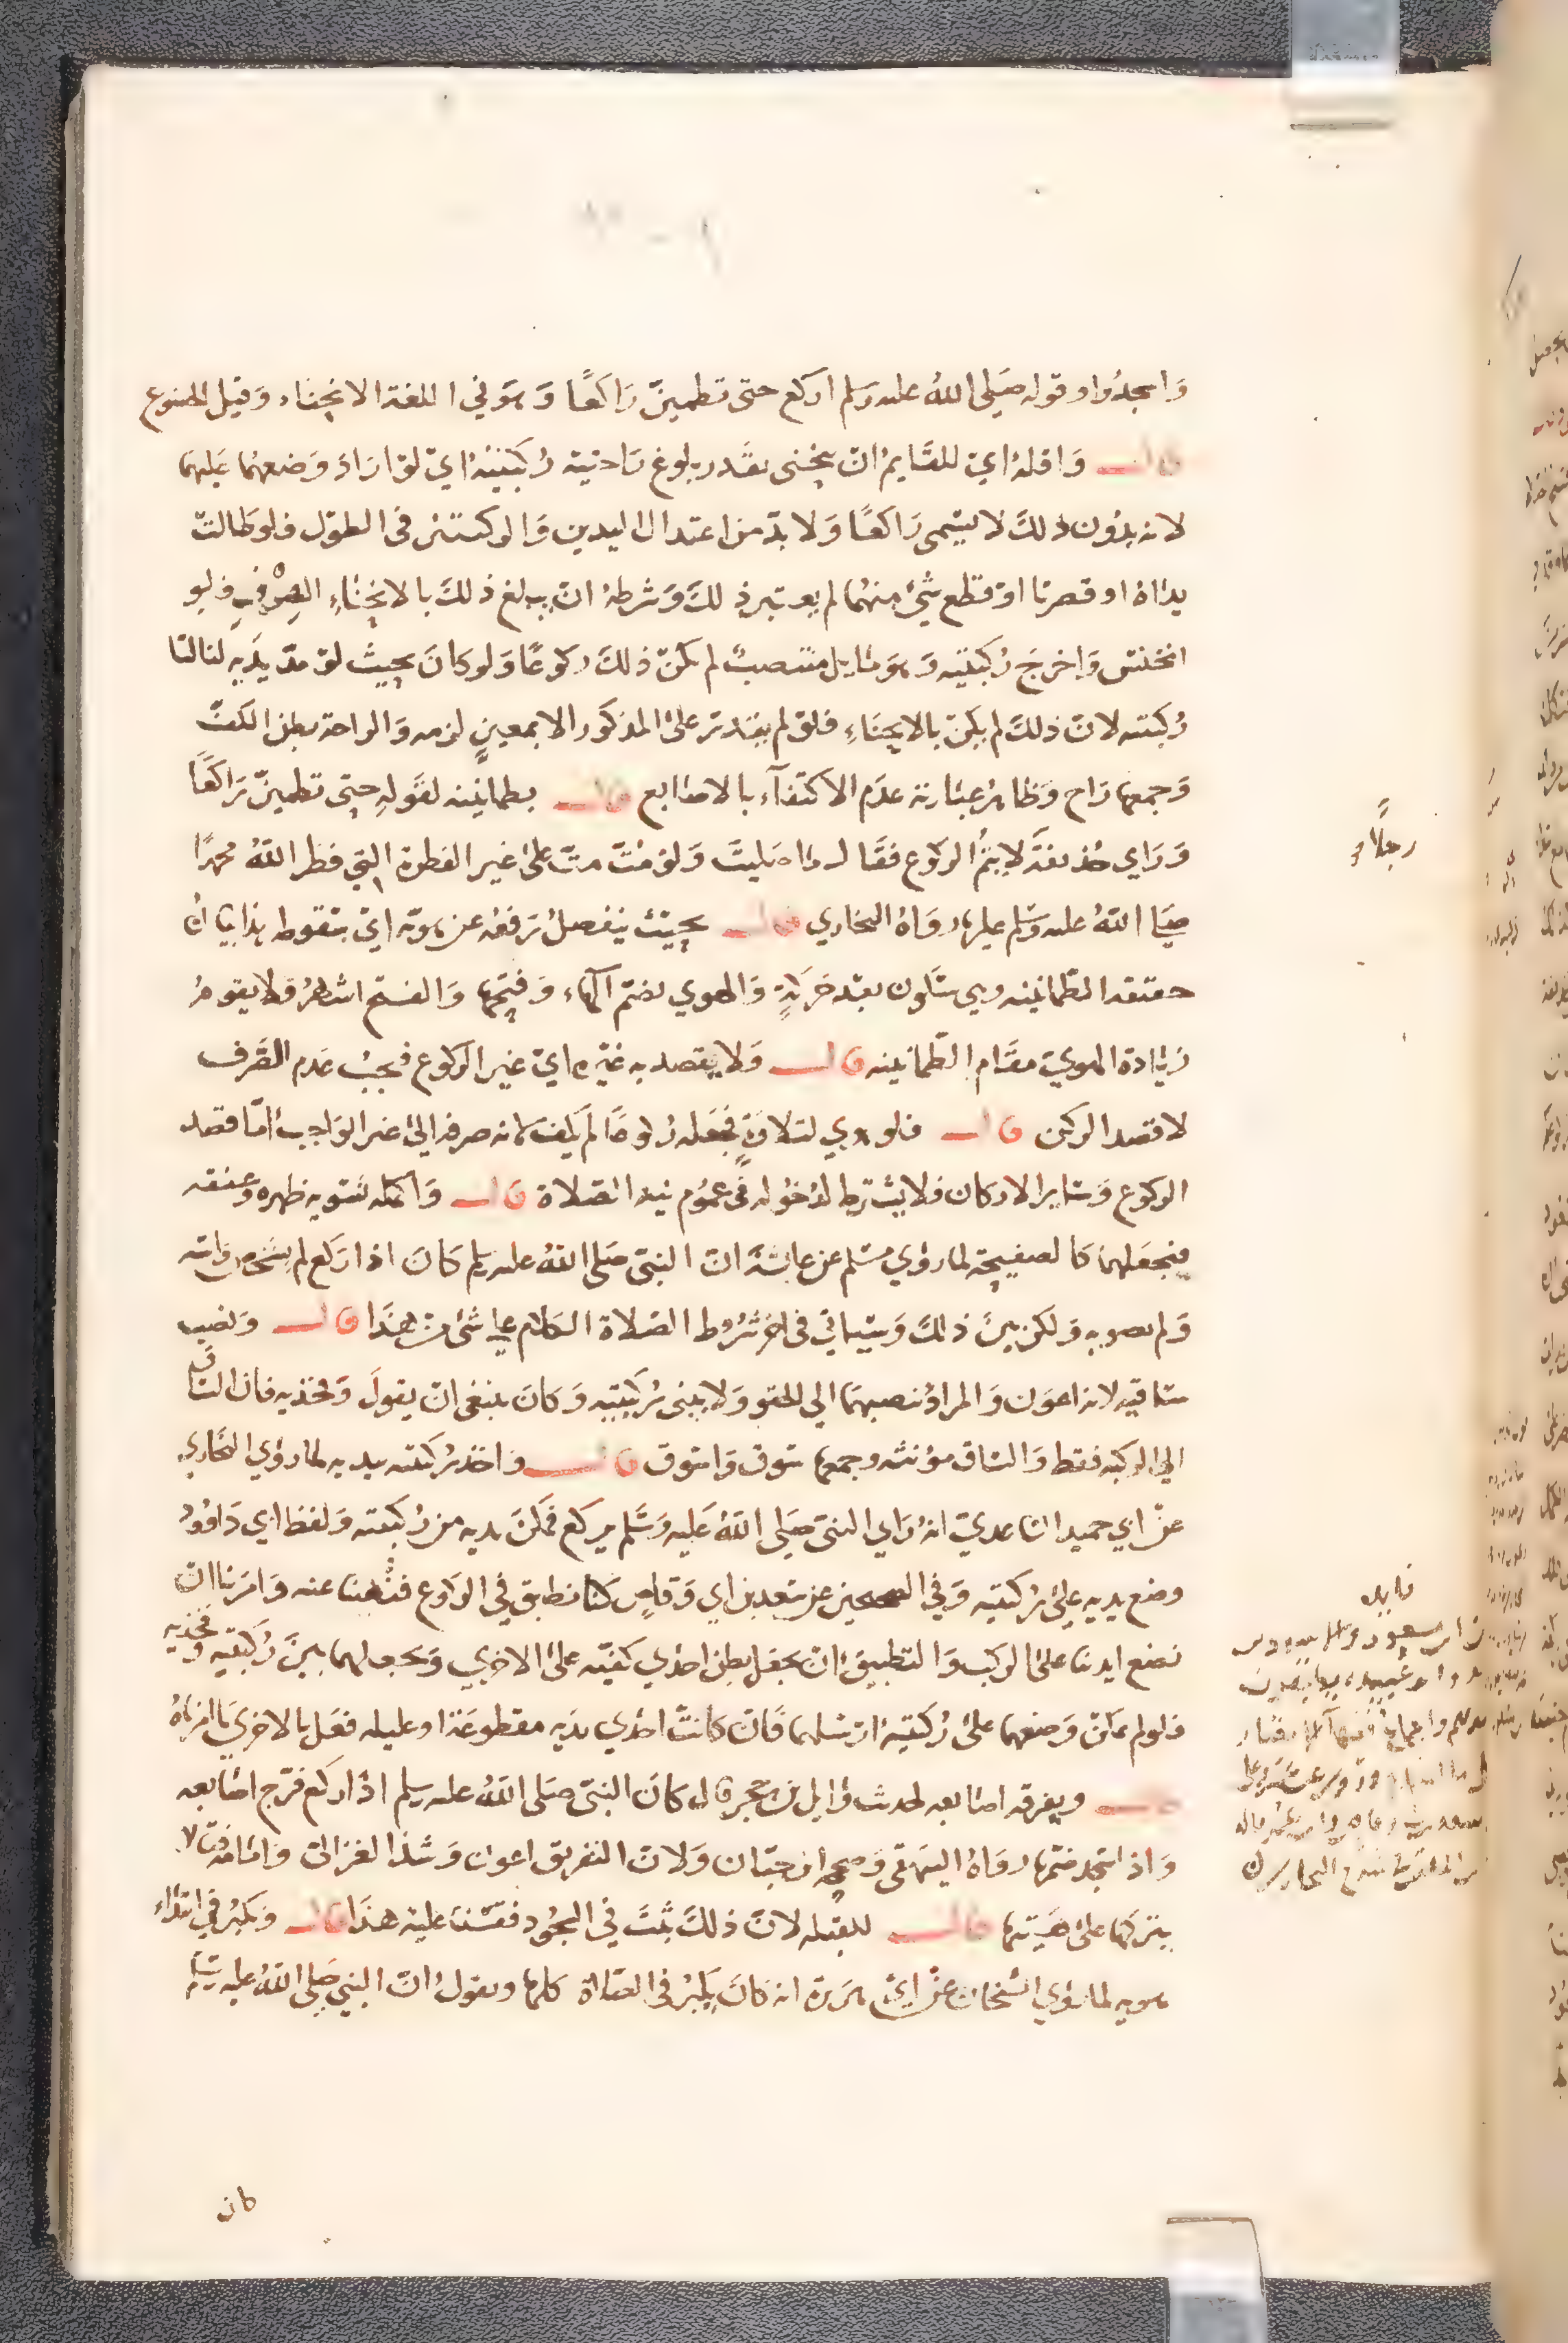 واسجدوا وقوله صلى الله عليه وسلم اركع حتى تطمين راكعًا وهو في اللغة الانحناء وقيل الخضوع
قال واقله اي للقايم ان ينحني بقدر بلوغ راحتيه ركبتيه اي لو اراد وضعهما عليهما
لانه بدون ذلك لا يسمى راكعًا ولا بد من اعتدال اليدين والركبتين في الطول فلو طالت
يداه او قصرتا او قطع شي منهما لم يعتبر ذلك وشرطه ان يبلغ ذلك بالانحناء الصرف فلو
انخنس واخرج ركبتيه وهو مايل منتصب لم يكن ذلك ركوعًا ولو كان بحيث لو مد يديه لنالتا
ركبتيه لان ذلك لم يكن بالانحناء فلو لم يقدر على المذكور الا بمعين لزمه والراحة بطن الكف
وجمعها راح وظاهر عبارته عدم الاكتفاء بالاصابع قال بطمانينه لقوله حتى تطمين راكعًا
وراي حذيفة لا يتم الركوع فقال ما صليت ولو مت مت على غير الفطرة التي فطر الله محمدًا
رجلا
صلى الله عليه وسلم عليها رواه البخاري قال بحيث ينفصل رفعه عن هويه اي سقوطه هذا بيان
حقيقة الطمانينه وهي سكون بعد حركة والهوي بضم الهاء وفتحها والفتح اشهر فلا يقوم
زيادة الهوي مقام الطمانينه قال ولا يقصد به غيره اي غير الركوع فيجب عدم الصرف
لا قصد الركن قال فلو هوي لتلاوة فجعله ركوعًا لم يكف لانه صرفه الى غير الواجب اما قصد
الركوع وساير الاركان فلا يشترط لدخوله في عموم نية الصلاة قال واكمله تسويه ظهره وعنقه
فيجعلهما كالصفيحة لما روي مسلم عن عايشة ان النبي صلى الله عليه وسلم كان اذا ركع لم يشخص راسه
ولم يصوبه ولكن بين ذلك وسياتي في اخر شروط الصلاة الكلام على شي من هذا قال ونصب
ساقيه لانه اعون والمراد نصبهما الى الحقو ولا يثني ركبتيه وكان ينبغي ان يقول وفخذيه فان الساق
الى الركبه فقط والساق مؤنثه وجمعها سوق واسوق قال واخذ ركبتيه بيديه لما روي البخاري
عن ابي حميد الساعدي انه راي النبي صلى الله عليه وسلم يركع فمكن يديه من ركبتيه ولفظ ابي داوود
وضع يديه على ركبتيه وفي الصحيحين عن سعد بن ابي وقاص كنا نطبق في الركوع فنهينا عنه وامرنا ان
نضع ايدينا على الركب والتطبيق ان يجعل بطن احدي كفيه على الاخري ويجعلهما بين ركبتيه وفخذيه
فلو لم يمكن وضعهما على ركبتيه ارسلهما فان كانت احدي يديه مقطوعة او عليله فعل بالاخري ما امرناه
قال ويفرقة اصابعه لحديث وايل بن حجر قال كان النبي صلى الله عليه وسلم اذا ركع فرّج اصابعه
واذا سجد ضمها رواه البيهقي وصححه ابن حبان ولان التفريق اعون وشذ الغزالي وامامه فقالا
يتركها على هيئتها قال للقبله لان ذلك ثبت في السجود فقسنا عليه هذا قال ويكبر في ابتداء
هويه لما روي الشيخان عن ابي هريرة انه كان يكبر في الصلاة كلها ويقول ان النبي صلى الله عليه وسلم
كان
فايده